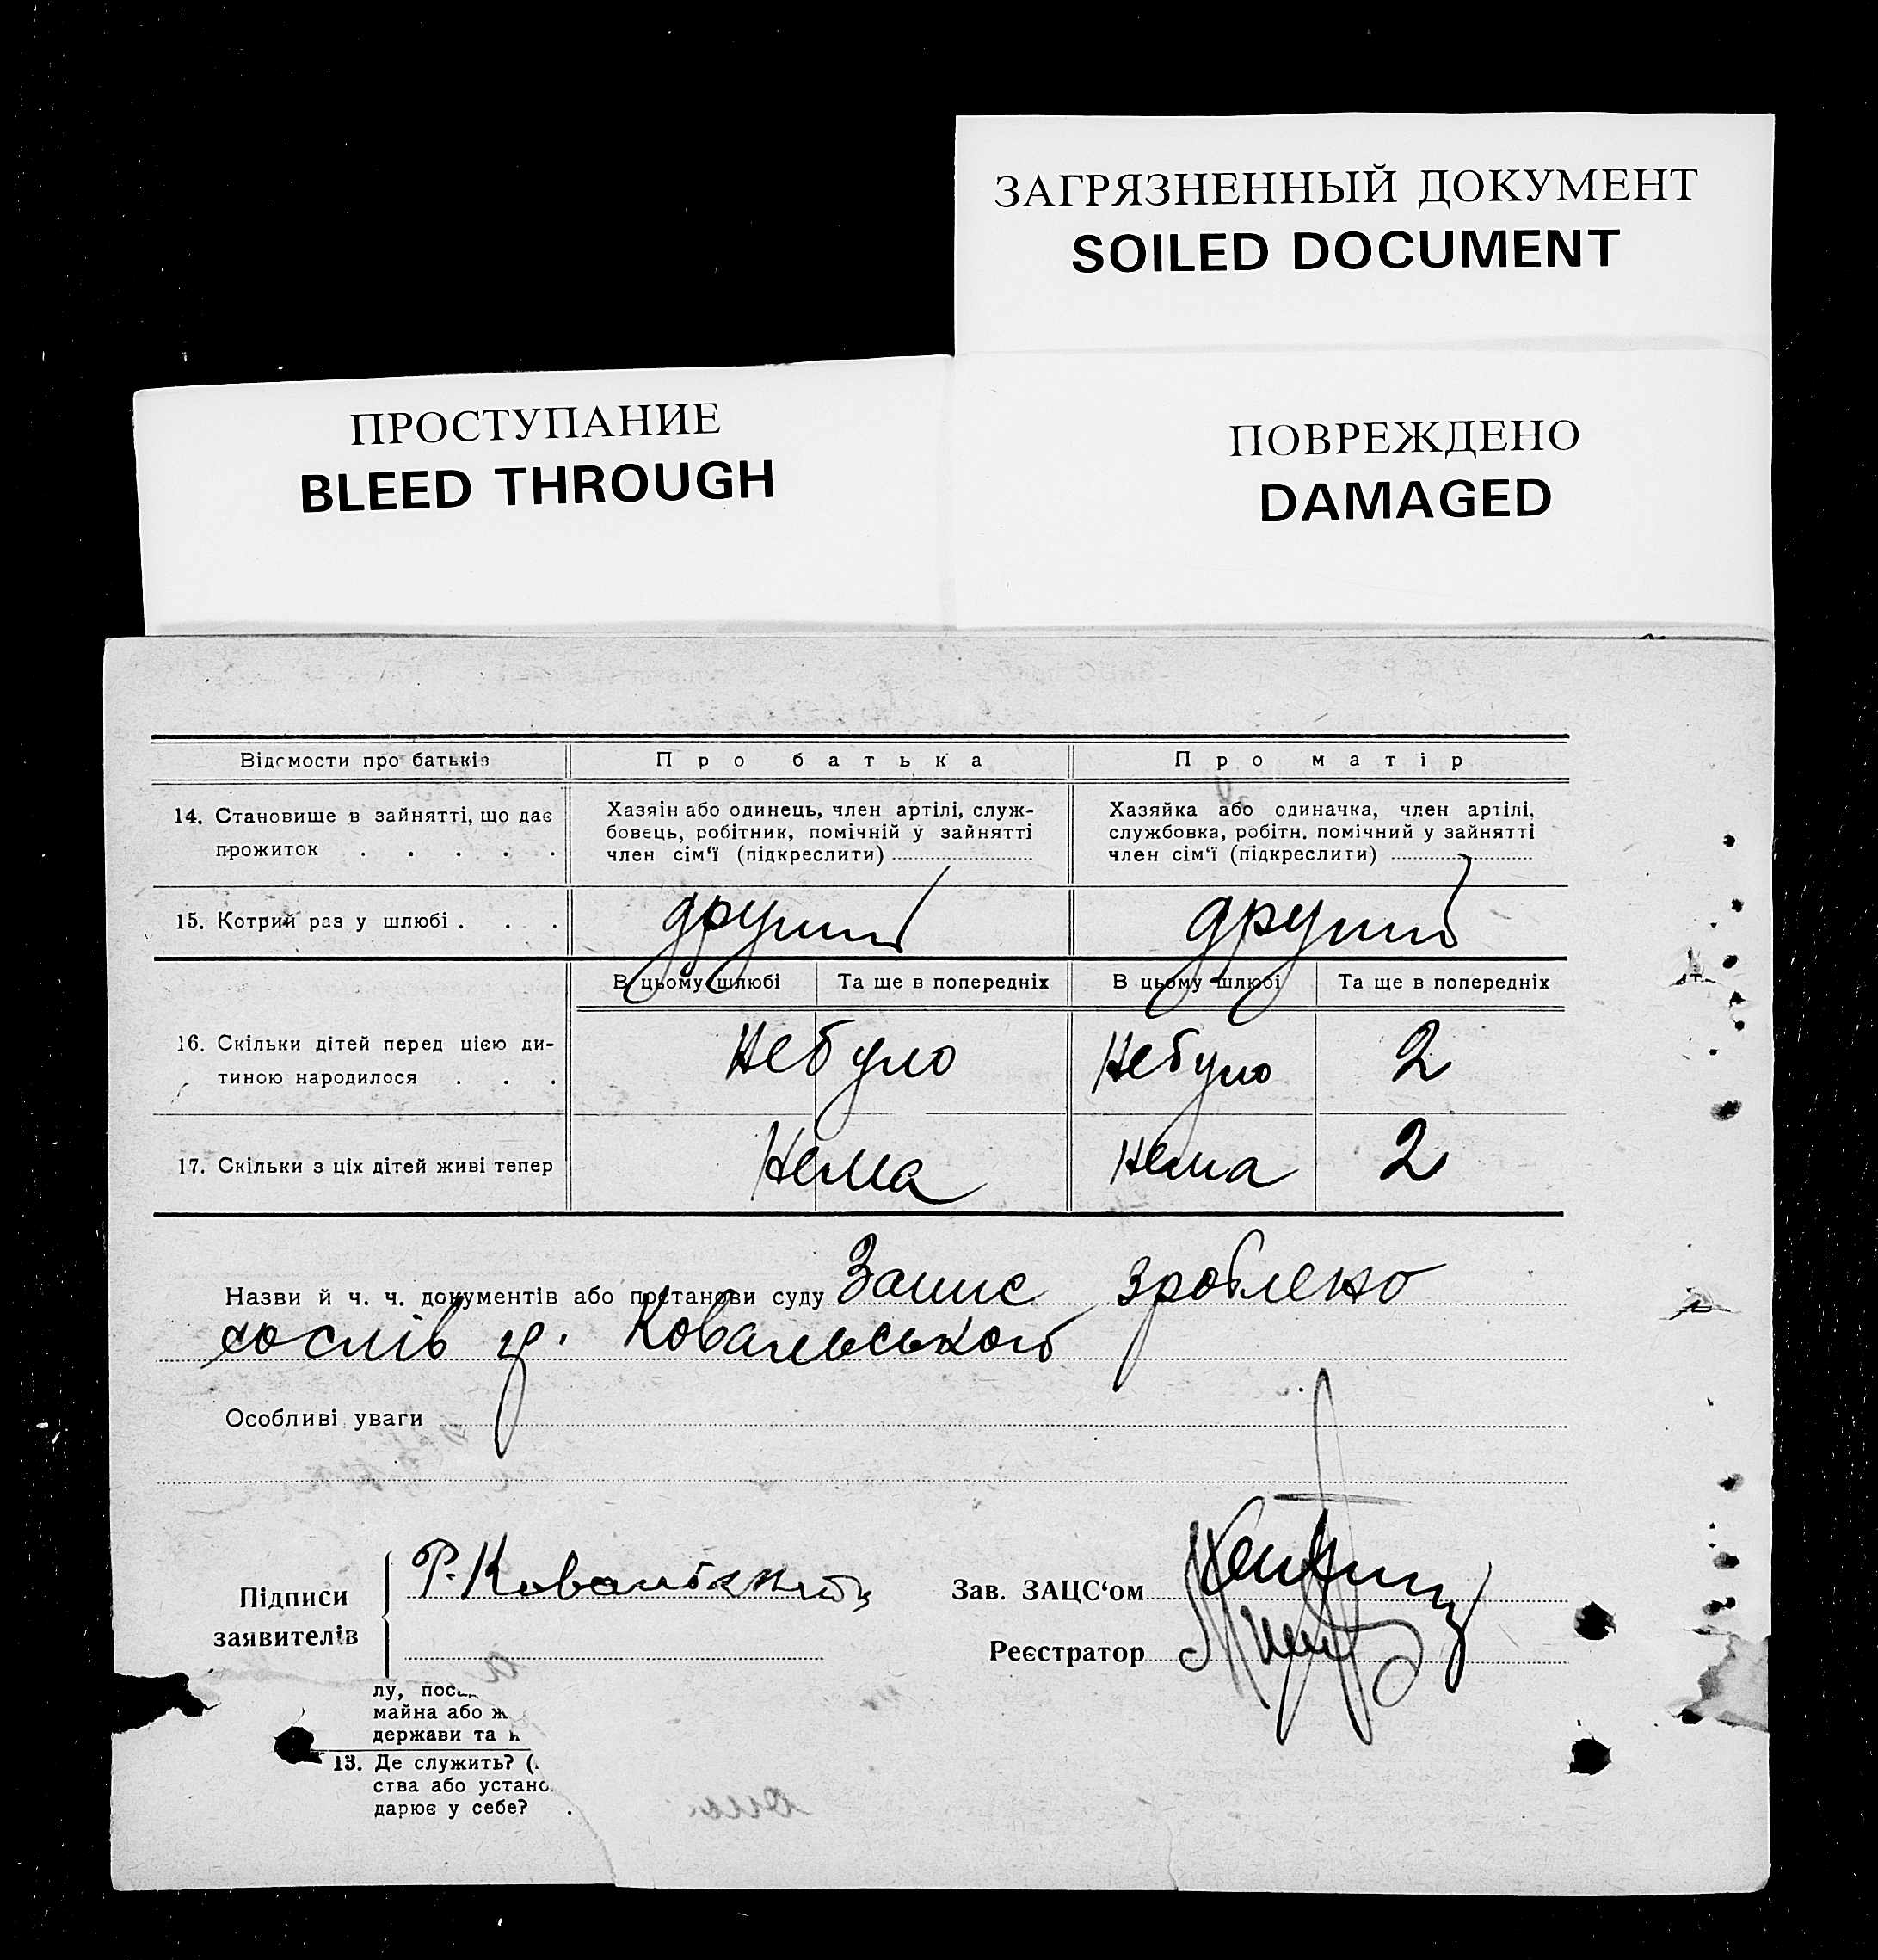 ЗАГРЯЗНЕННЫЙ ДОКУМЕНТ
SOILED DOCUMENT
ПРОСТУПАНИЕ
BLEED THROUGH
ПОВРЕЖДЕНО
DAMAGED
Відомости про батьків
Про батька
Про матір
14. Становище в зайнятті, що дає
прожиток . . . . .
Хазяін або одинець, член артілі, служ-
бовець, робітник, помічній у зайнятті
член сім‘ї (підкреслити)
Хазяйка або одиначка, член артілі,
службовка, робітн. помічний у зайнятті
член сім‘ї (підкреслити)
15. Котрий раз у шлюбі . . .
другий
другий
В цьому шлюбі
Та ще в попередніх
В цьому шлюбі
Та ще в попередніх
16. Скільки дітей перед цією ди-
тиною народилося . . .
Небуло
Небуло
2
17. Скільки з ціх дітей живі тепер
Нема
Нема
2
Назви й ч. ч. документів або постанови суду Запис зроблено
со слів гр. Ковальського
Особливі уваги
Підписи
заявителів
Зав. ЗАЦС‘ом
Реєстратор
лу,
майна або ж
держави та
13. Де служить? (
ства або устано
дарює у себе? .